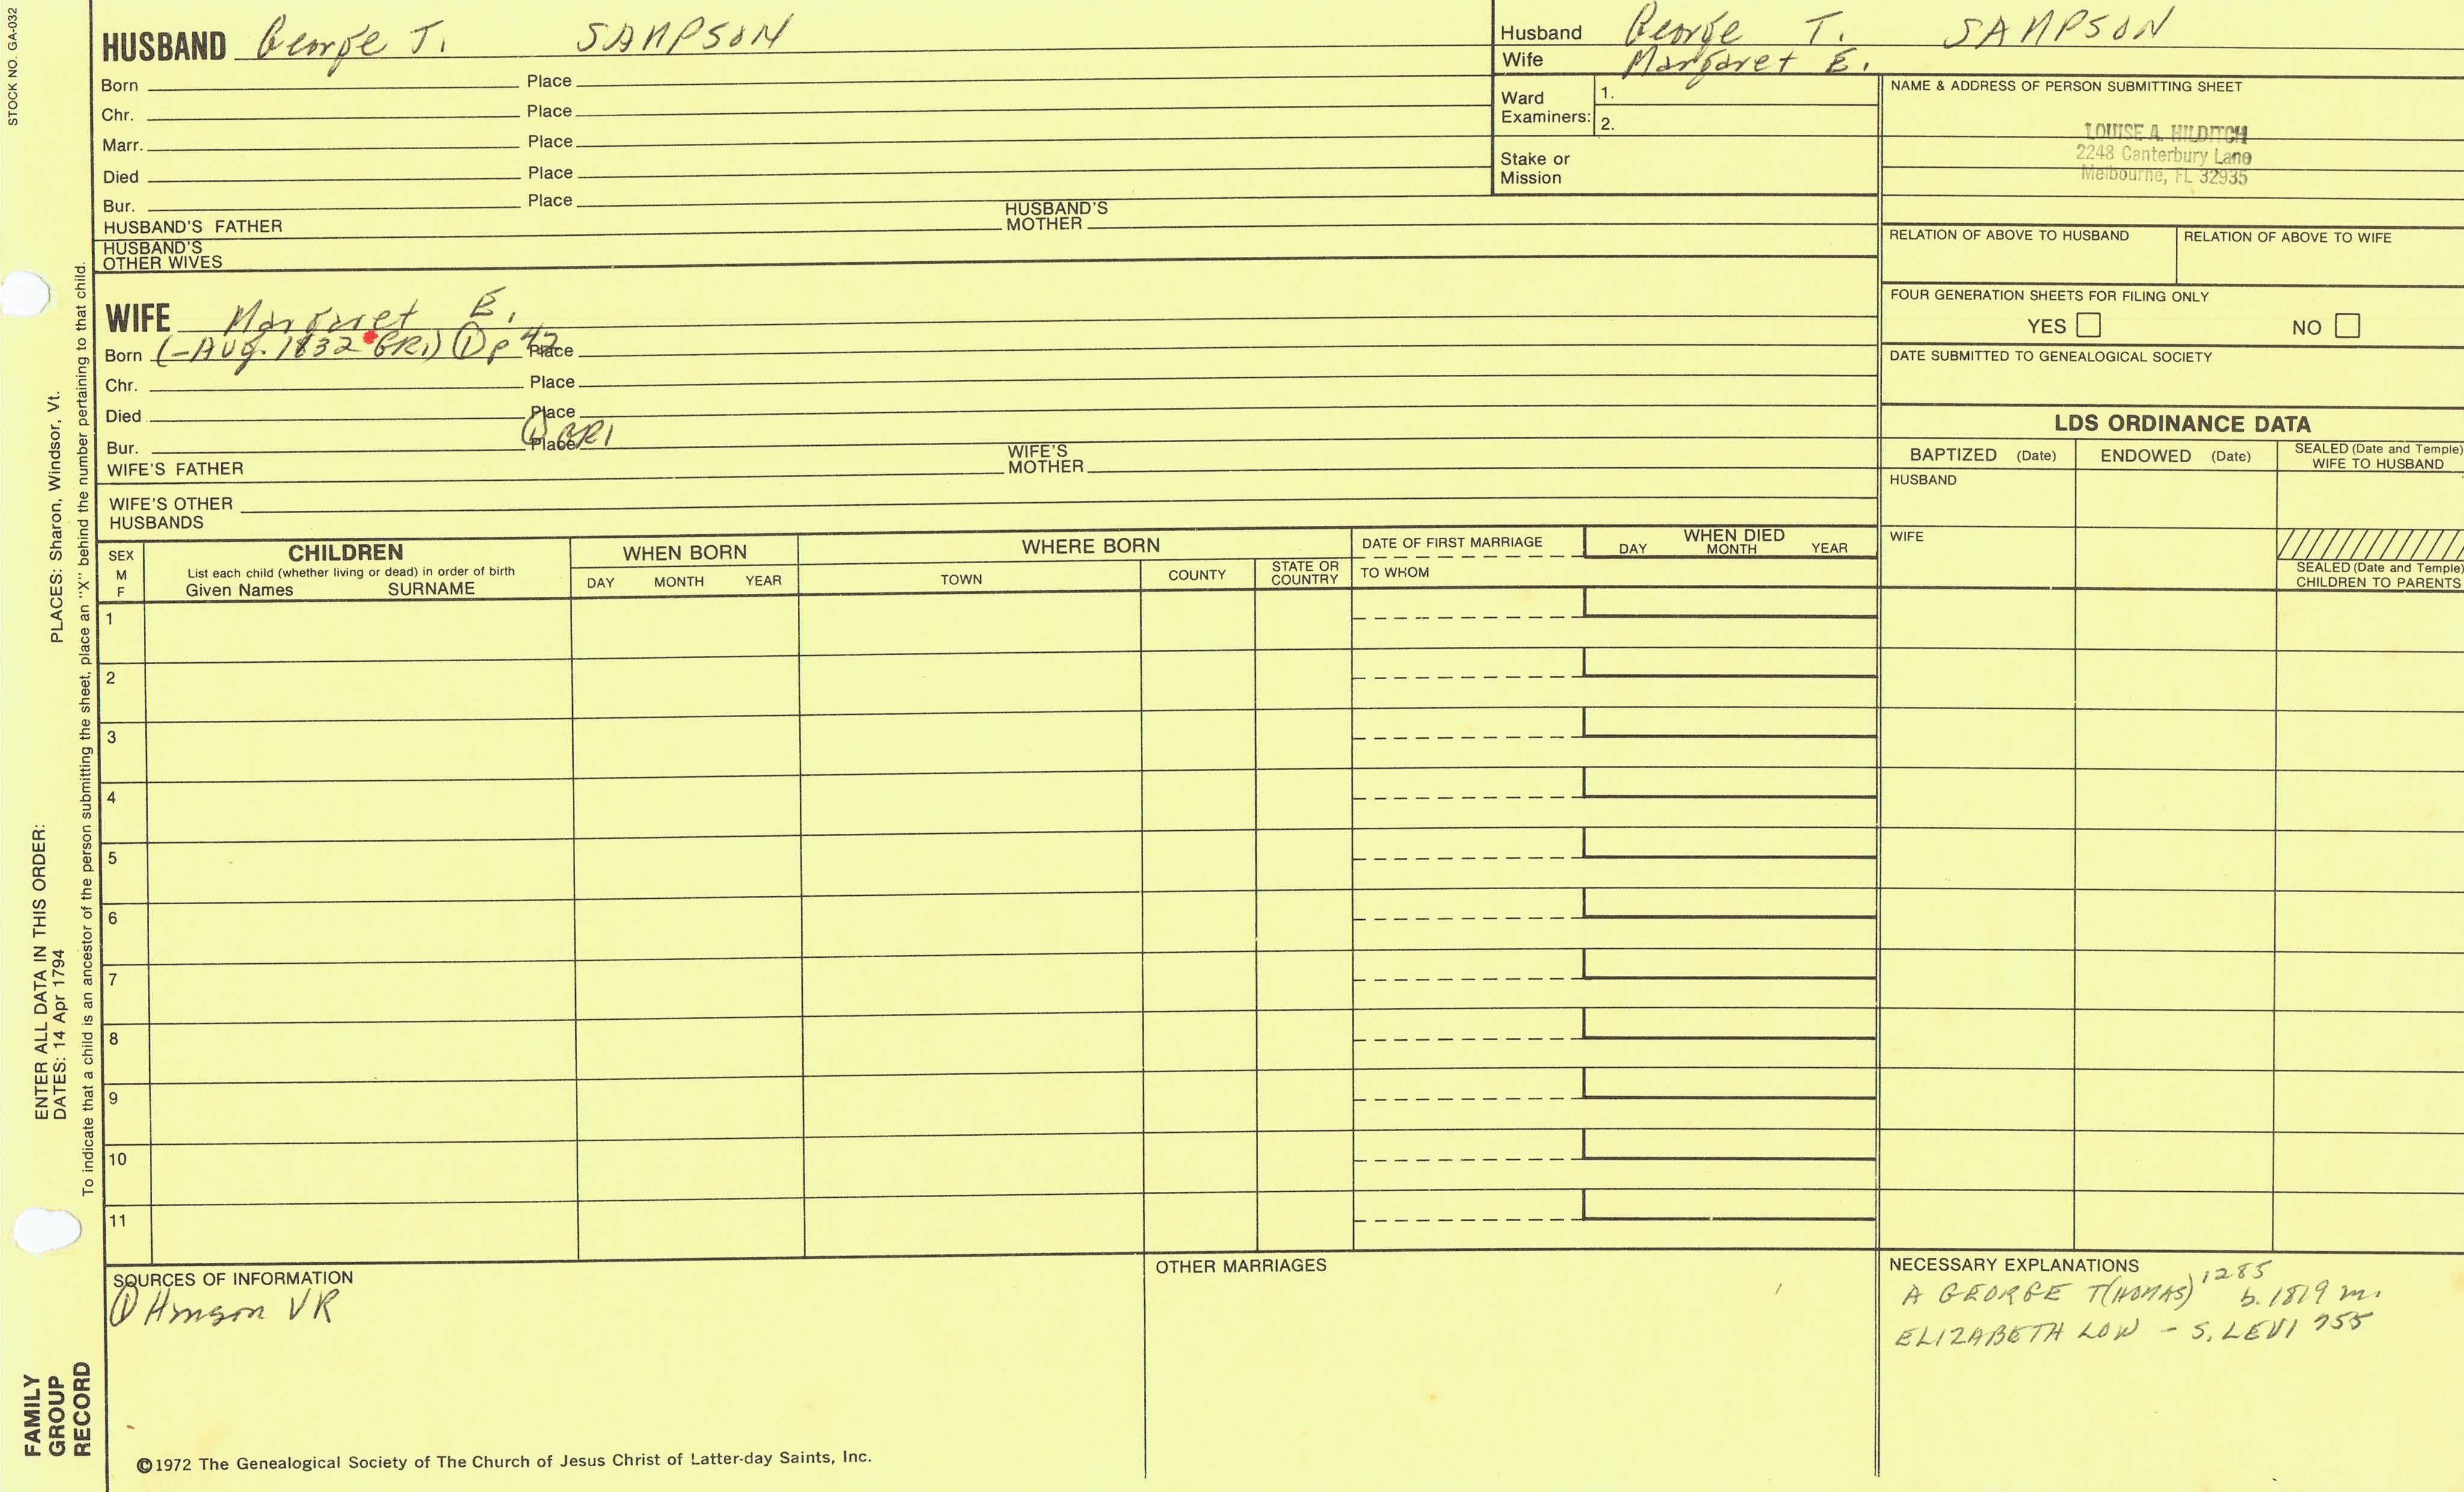 STOCK NO. GA-032
HUSBAND George T. SAMPSON
Born Place
Chr. Place
Marr. Place
Died Place
Bur. Place
HUSBAND'S FATHER HUSBAND'S MOTHER
HUSBAND'S OTHER WIVES
WIFE Margaret E.
Born (-AUG. 1832 GR1) ① p 42 Place
Chr. Place
Died Place
Bur. Place ① GR1
WIFE'S FATHER WIFE'S MOTHER
WIFE'S OTHER HUSBANDS
Husband George T. SAMPSON
Wife Margaret E.
Ward Examiners: 1.
2.
Stake or Mission
NAME & ADDRESS OF PERSON SUBMITTING SHEET
LOUISE A. HILDITCH
2248 Canterbury Lane
Melbourne, FL 32935
RELATION OF ABOVE TO HUSBAND RELATION OF ABOVE TO WIFE
FOUR GENERATION SHEETS FOR FILING ONLY
YES NO
DATE SUBMITTED TO GENEALOGICAL SOCIETY
LDS ORDINANCE DATA
BAPTIZED (Date) ENDOWED (Date) SEALED (Date and Temple) WIFE TO HUSBAND
HUSBAND
WIFE
SEALED (Date and Temple) CHILDREN TO PARENTS
SEX M F
CHILDREN
List each child (whether living or dead) in order of birth
Given Names SURNAME
WHEN BORN
DAY MONTH YEAR
WHERE BORN
TOWN COUNTY STATE OR COUNTRY
DATE OF FIRST MARRIAGE
TO WHOM
WHEN DIED
DAY MONTH YEAR
1
2
3
4
5
6
7
8
9
10
11
SOURCES OF INFORMATION
① Hanson VR
OTHER MARRIAGES
NECESSARY EXPLANATIONS
A GEORGE T(HOMAS) 1285 b. 1819 m.
ELIZABETH LOW - S. LEVI 755
©1972 The Genealogical Society of The Church of Jesus Christ of Latter-day Saints, Inc.
FAMILY GROUP RECORD
ENTER ALL DATA IN THIS ORDER:
DATES: 14 Apr 1794 PLACES: Sharon, Windsor, Vt.
To indicate that a child is an ancestor of the person submitting the sheet, place an "X" behind the number pertaining to that child.